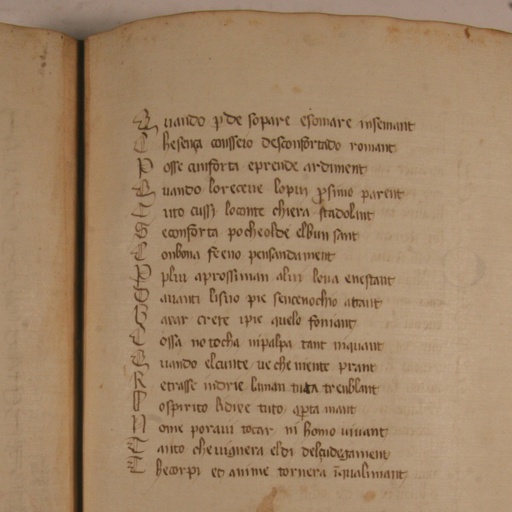 Quando pde sopare esomare insemant
C hesença conseio desconfortado romant
P osse cunforta eprende ardiment
Quando loreceue lopui psimo parent
T uto cussi loconte chiera stadolint
S econforta pocheolde elbun sant
C onbona fe eno pensandament
P plui aprossiman alui loua enestant
auanti lisuo pie sencenochio atant
crere ipie quelo foniant
C ossa no tocha nipalpa tant niquant
Quando elcunte ue che niente prant
R etrasse indrie laman tuta tremblant
ospirito lidire tuto qpta mant
N ome poraui tocar ni homo uiuant
T anto cheuignera eldi delçudegament
C hecorpi ed anime tornera igualimant